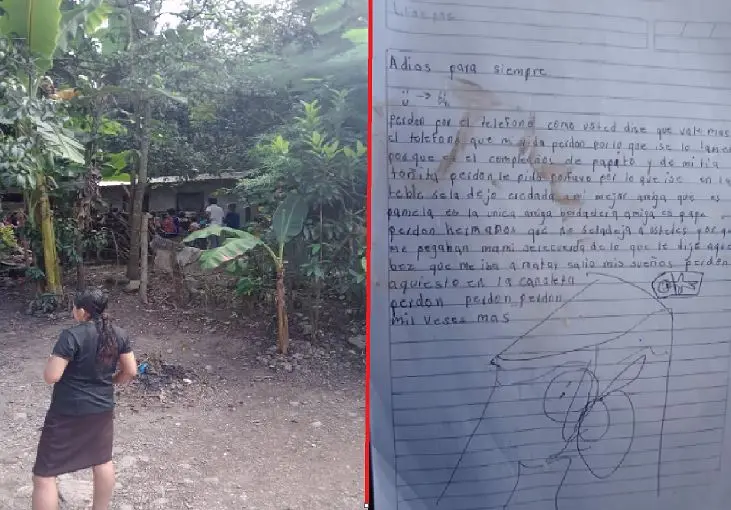 Adios para siempre
perdon por el telefono como usted dise que vale mas
el telefono que mi vida perdon por lo que
porque es el compleaños de papato y de mi tia
perdon le pido porfavo por lo que ise en la
tebla se la dejo cuidada mi mejor amiga que es
pamela es la unica amiga berdadera amiga es papa
perdon hermanos que se
me pegaban mami se recuerda de lo que le dije aque
bez que me iba a matar salio mis sueños perdon
aqui esto en la candela
perdon perdon perdon
mil veses mas